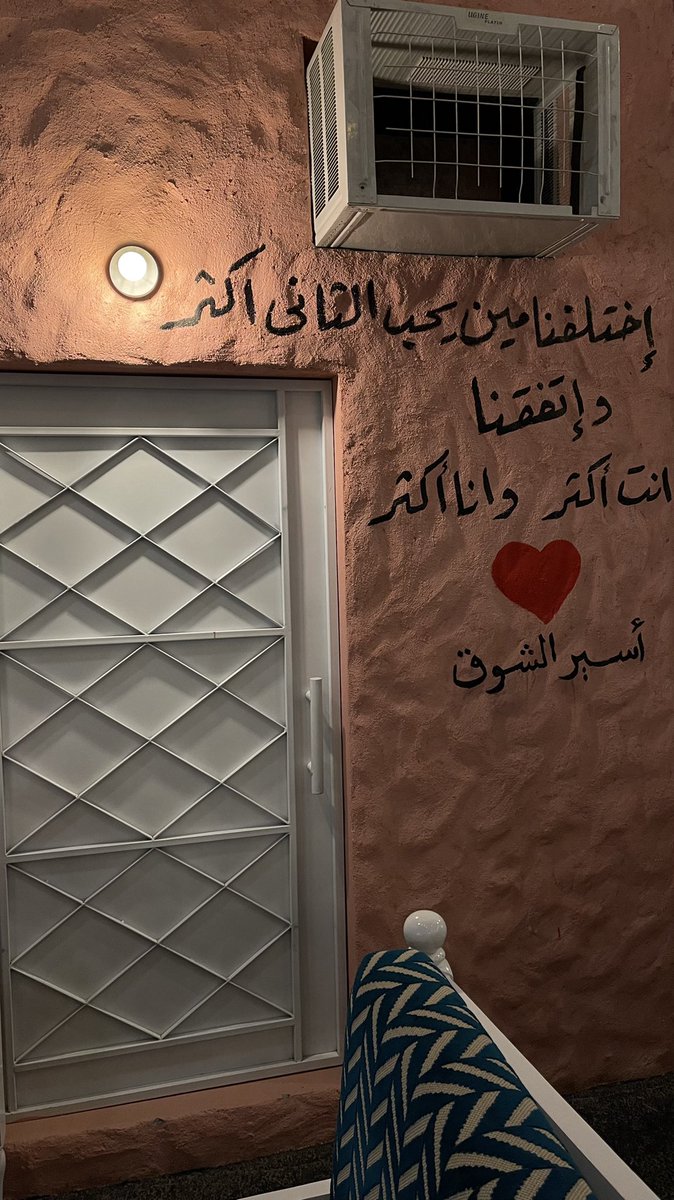 UGINE
PLATIN
إختلفنا مين يحب الثانى اكثر
وإتفقنا
انت أكثر وانا أكثر
أسير الشوق